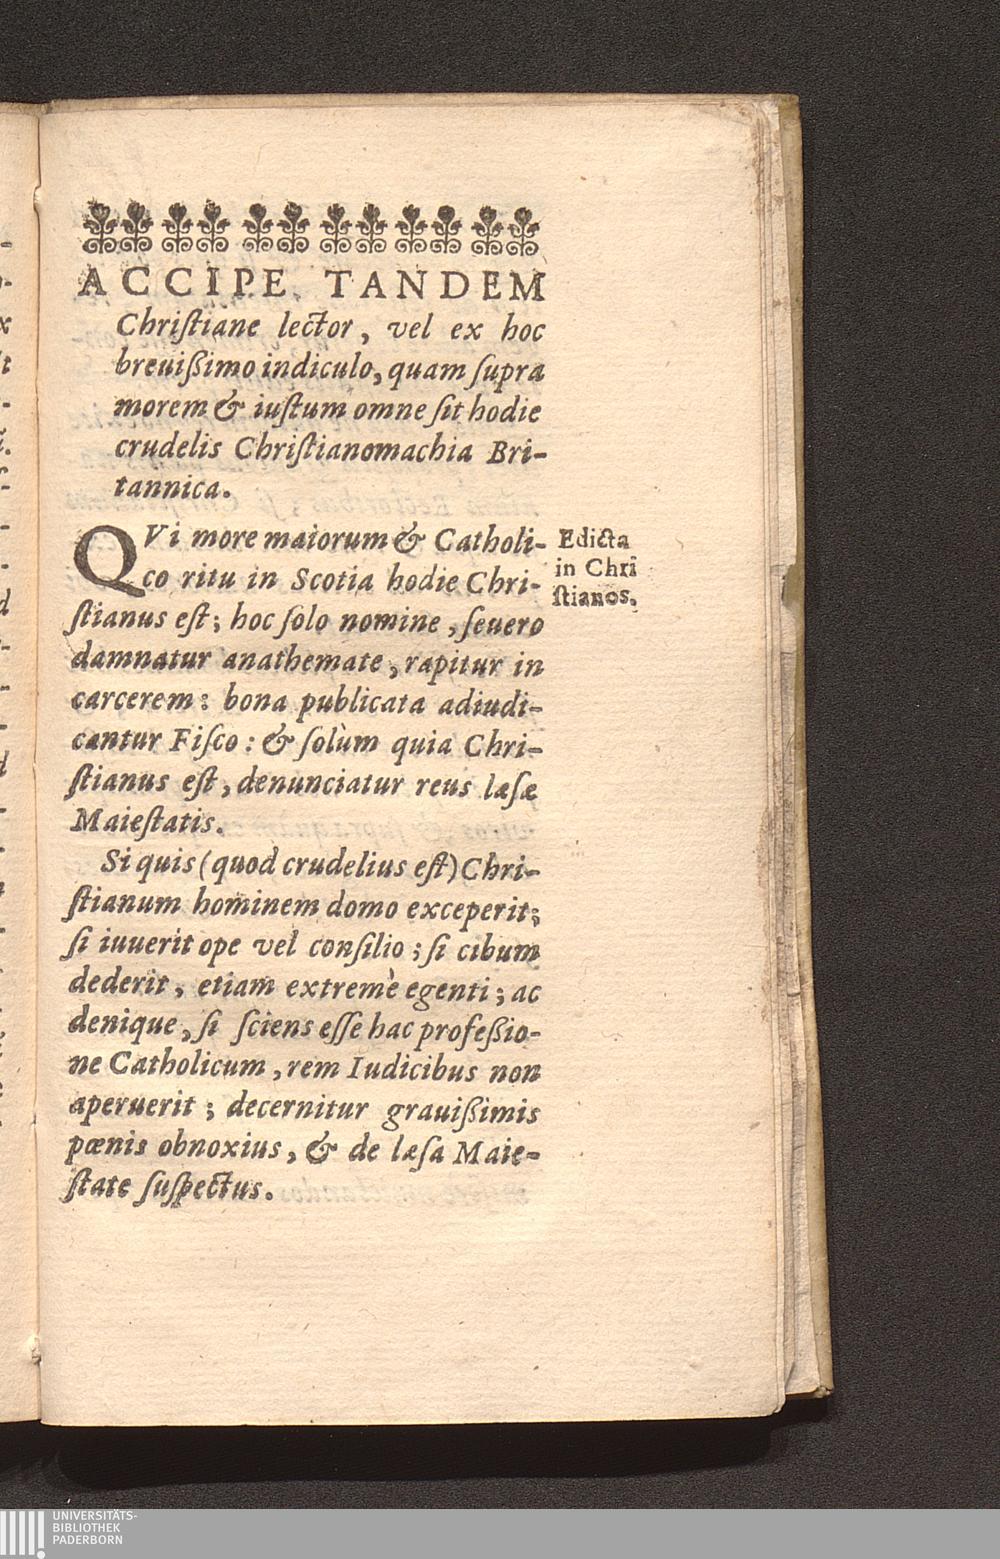 ACCIPE TANDEM
Chriſtiane lector, vel ex hoc
breuißimo indiculo, quam ſupra
morem & iuſtum omne ſit hodie
crudelis Chriſtianomachia Bri-
tannica.
QVi more maiorum & Catholi-
co ritu in Scotia hodie Chri-
ſtianus eſt; hoc ſolo nomine, ſeuero
damnatur anathemate, rapitur in
carcerem: bona publicata adiudi-
cantur Fiſco: & ſolùm quia Chri-
ſtianus eſt, denunciatur reus læſæ
Maieſtatis.
Edicta
in Chri
ſtianos.
Si quis (quod crudelius eſt) Chri-
ſtianum hominem domo exceperit;
ſi iuuerit ope vel conſilio; ſi cibum
dederit, etiam extremè egenti; ac
denique, ſi ſciens eſſe hac profeßio-
ne Catholicum, rem Iudicibus non
aperuerit; decernitur grauißimis
pœnis obnoxius, & de læſa Maie-
ſtate ſuſpectus.
UNIVERSITÄTS-
BIBLIOTHEK
PADERBORN